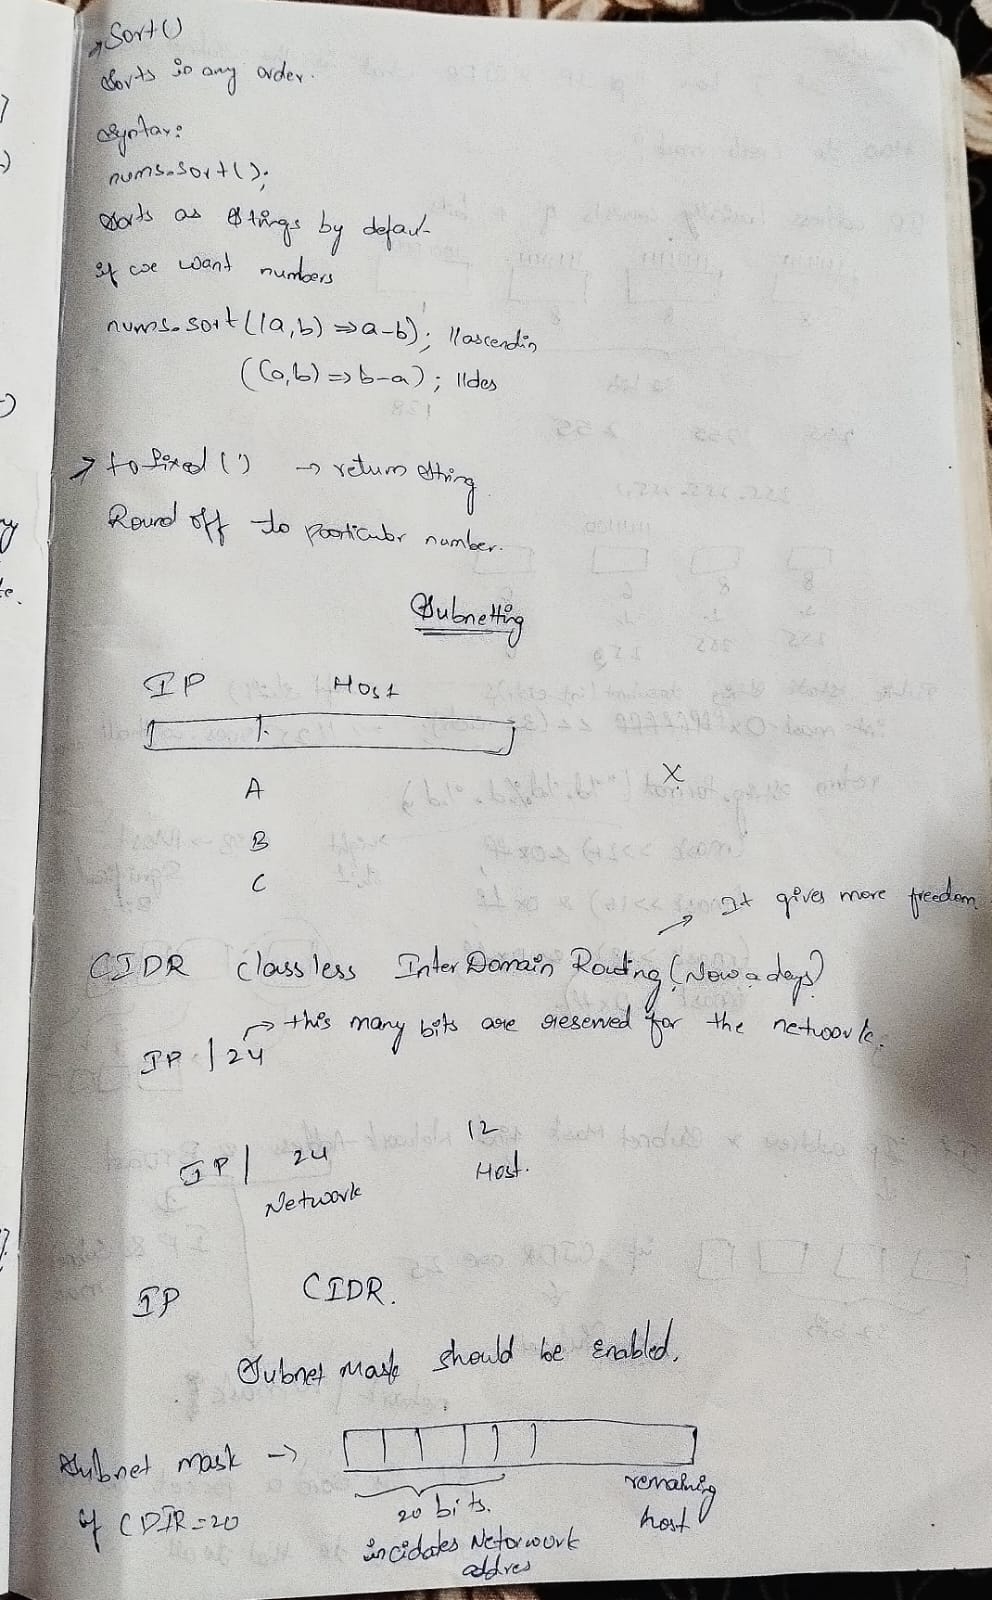 → Sort()
Sorts in any order.
Syntax:
nums.sort();
Sorts as Strings by defaul-
if we want numbers
nums.sort((a,b) => a-b); //ascendin
((a,b) => b-a); //des
→ to fixed () → return string
Round off to particular number.
Subnetting
IP Host
A
X
B
C
→ It gives more freedom.
CIDR Classless InterDomain Routing (Now a days)
→ this many bits are reserved for the network.
IP / 24
12
IP / 24 Host.
Network
IP CIDR.
Subnet Mask should be Enabled.
Subnet mask →
if CDIR=20
20 bits. remaining
incidates Networwork host
addres